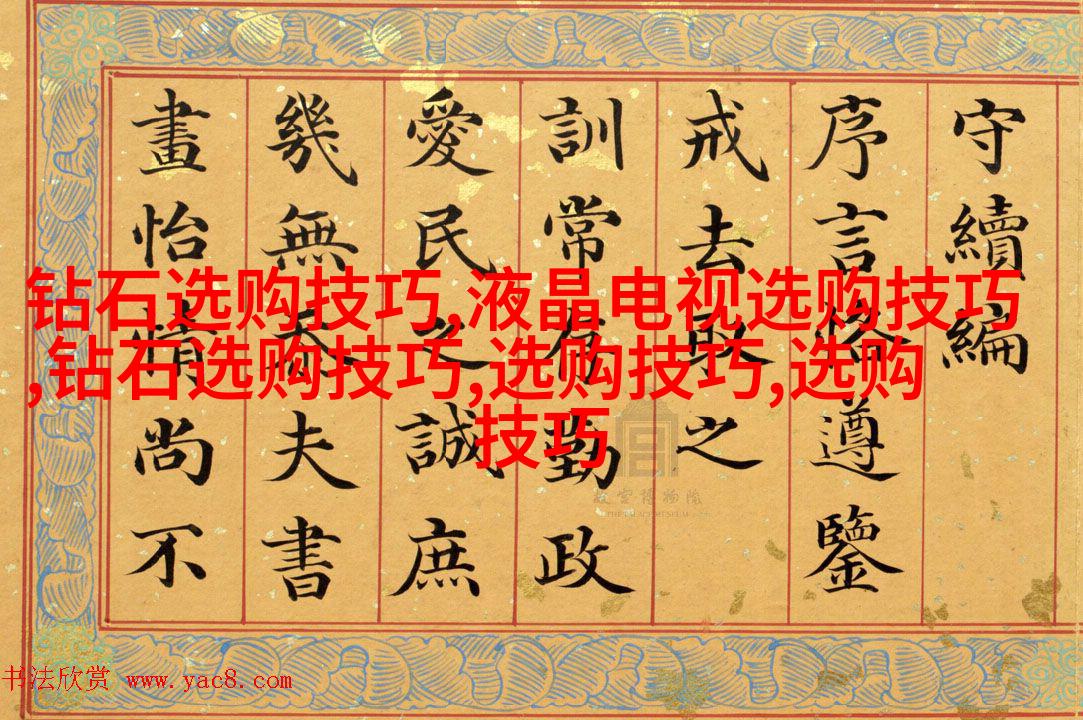 钻石选购技巧,液晶电视选购技巧
,钻石选购技巧,选购技巧,选购
技巧
守續編
序言恪遵鑒
戒去取之
訓常勤政
愛民之誠庶
幾無忝夫書
畫怡情尚不
故宫博物院
THE PALACE MUSEUM
书法欣赏 www.yac8.com